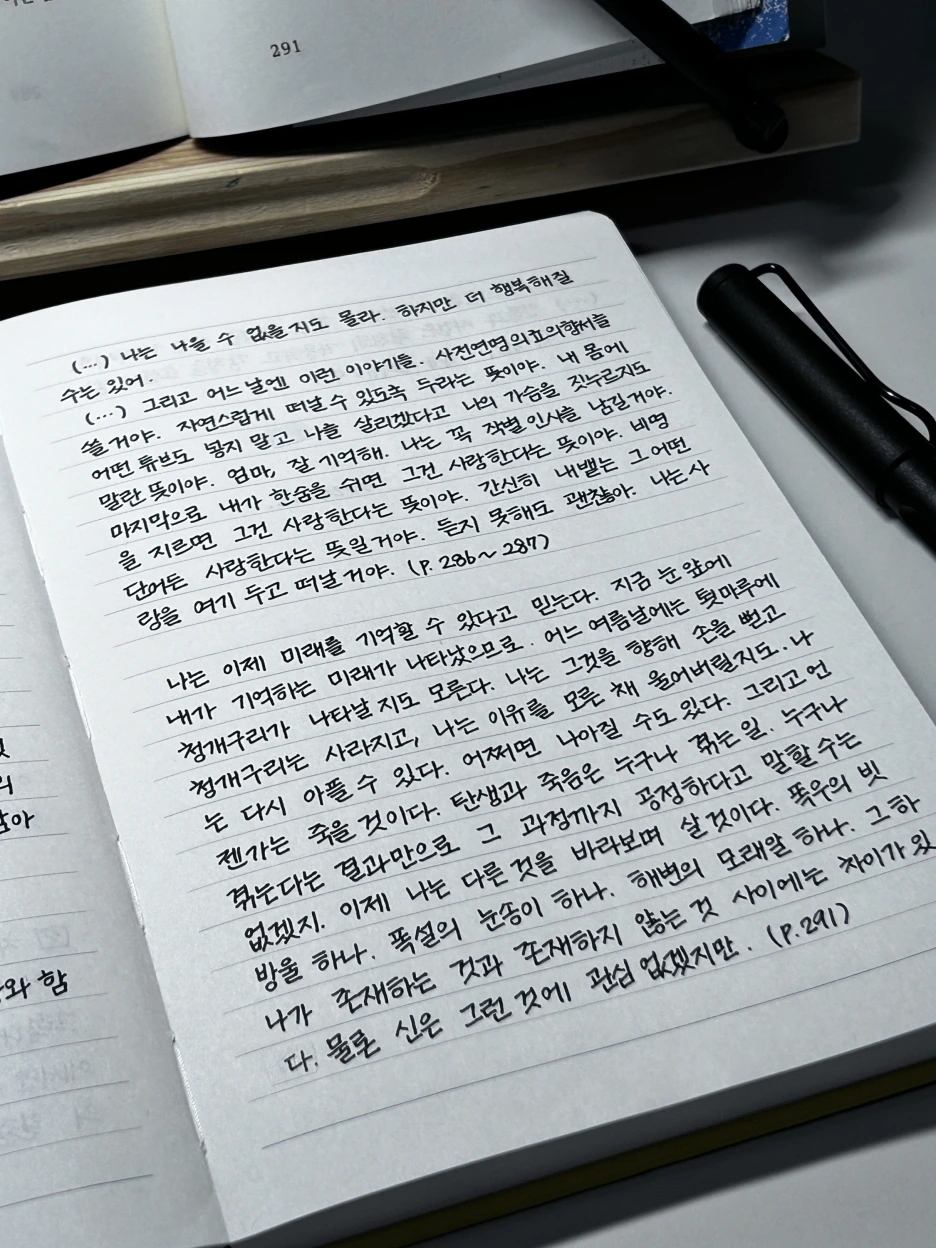 291
(…) 나는 나을 수 없을지도 몰라. 하지만 더 행복해질
수는 있어.
(…) 그리고 어느 날엔 이런 이야기들. 사전연명의료의향서를
쓸 거야. 자연스럽게 떠날 수 있도록 두라는 뜻이야. 내 몸에
어떤 튜브도 넣지 말고 나를 살리겠다고 나의 가슴을 짓누르지도
말란 뜻이야. 엄마, 잘 기억해. 나는 꼭 작별 인사를 남길거야.
마지막으로 내가 한숨을 쉬면 그건 사랑한다는 뜻이야. 비명
을 지르면 그건 사랑한다는 뜻이야. 간신히 내뱉는 그 어떤
단어든 사랑한다는 뜻일거야. 듣지 못해도 괜찮아. 나는 사
랑을 여기 두고 떠날거야. (P. 286~287)
나는 이제 미래를 기억할 수 있다고 믿는다. 지금 눈 앞에
내가 기억하는 미래가 나타났으므로. 어느 여름날에는 툇마루에
청개구리가 나타날지도 모른다. 나는 그것을 향해 손을 뻗고
청개구리는 사라지고, 나는 이유를 모른 채 울어버릴지도. 나
는 다시 아플 수 있다. 어쩌면 나아질 수도 있다. 그리고 언
젠가는 죽을 것이다. 탄생과 죽음은 누구나 겪는 일. 누구나
겪는다는 결과만으로 그 과정까지 공정하다고 말할 수는
없겠지. 이제 나는 다른 것을 바라보며 살 것이다. 폭우의 빗
방울 하나. 폭설의 눈송이 하나. 해변의 모래알 하나. 그 하
나가 존재하는 것과 존재하지 않는 것 사이에는 차이가 있
다. 물론 신은 그런 것에 관심 없겠지만. (P.291)
와 함